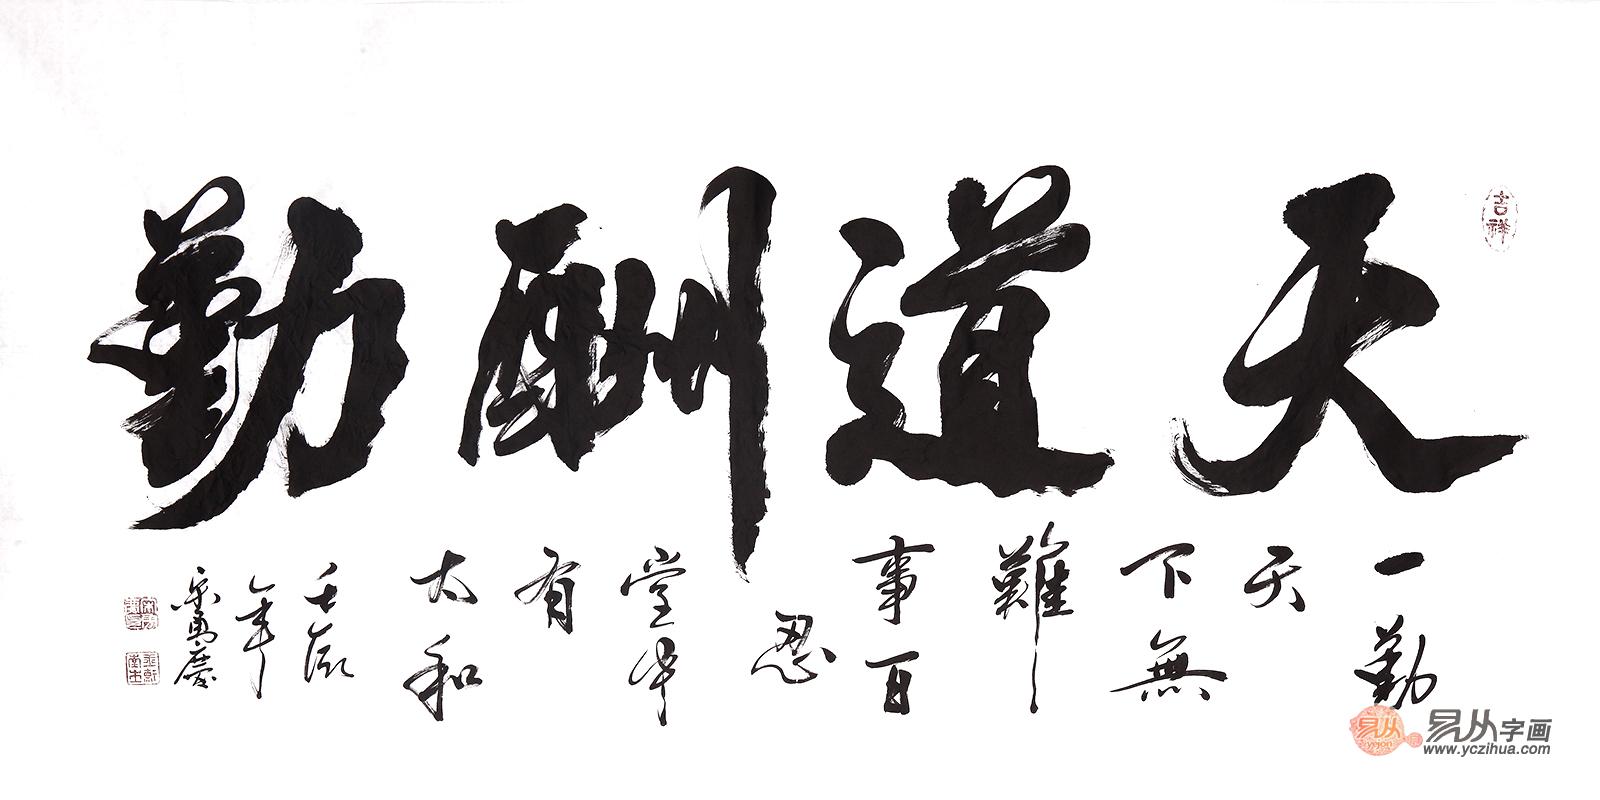 吉祥
天道酬勤
一勤
天
下無
難
事百
忍
堂中
有
太和
壬辰
年
易从
yicjon
易从字画
www.yczihua.com